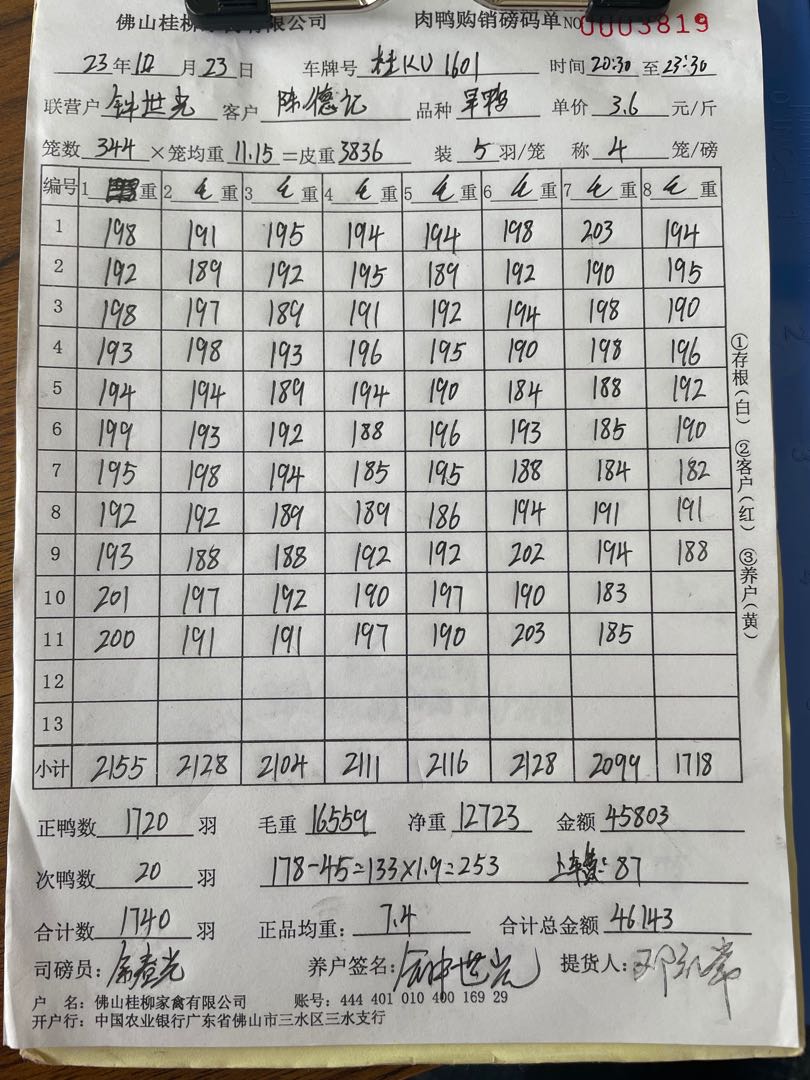 佛山桂柳家禽有限公司 肉鸭购销磅码单 NO 0003819
23年10月23日 车牌号 桂KU1601 时间 20:30 至 23:30
联营户 钟世光 客户 陈德记 品种 旱鸭 单价 3.6 元/斤
笼数 344 ×笼均重 11.15 =皮重 3836 装 5 羽/笼 称 4 笼/磅
编号 1 重 2 毛 重 3 毛 重 4 毛 重 5 毛 重 6 毛 重 7 毛 重 8 毛 重
1 198 191 195 194 194 198 203 194
2 192 189 192 195 189 192 190 195
3 198 197 189 191 192 194 198 190
4 193 198 193 196 195 190 198 196
5 194 194 189 194 190 184 188 192
6 199 193 192 188 196 193 185 190
7 195 198 194 185 195 188 184 182
8 192 192 189 189 186 194 191 191
9 193 188 188 192 192 202 194 188
10 201 197 192 190 197 190 183
11 200 191 191 197 190 203 185
12
13
小计 2155 2128 2104 2111 2116 2128 2099 1718
①存根(白) ②客户(红) ③养户(黄)
正鸭数 1720 羽 毛重 16559 净重 12723 金额 45803
次鸭数 20 羽 178-45=133×1.9=253 上车费: 87
合计数 1740 羽 正品均重: 7.4 合计总金额 46143
司磅员: 养户签名: 钟世光 提货人:
户 名: 佛山桂柳家禽有限公司 账号: 444 401 010 400 169 29
开户行: 中国农业银行广东省佛山市三水区三水支行